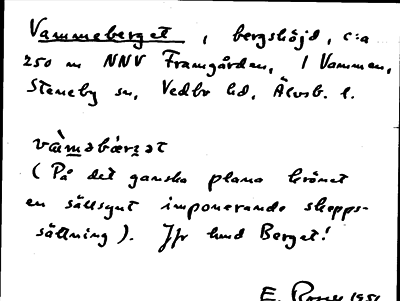 Vammeberget, bergshöjd, c:a
250 m NNV Framgården, 1 Vammen,
Steneby sn, Vedbo hd, Älvsb. l.
vàmǝbærʒǝt
(På det ganska plana krönet
en sällsynt imponerande skepps-
sättning). Jfr lund Berget!
E. 1951